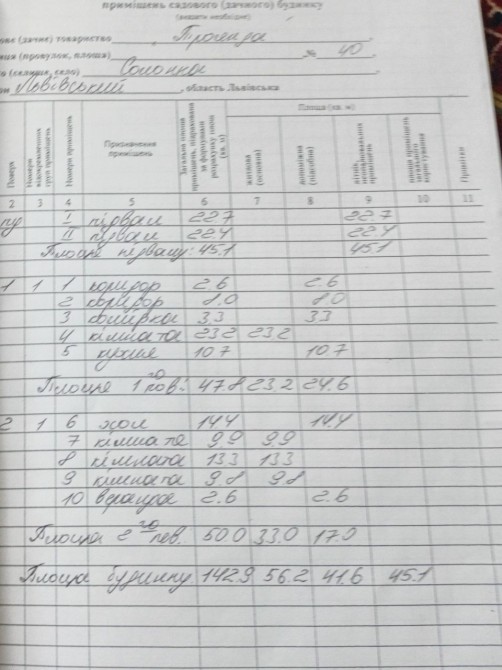 приміщень садового (дачного) будинку
(вказати необхідне)
ове (дачне) товариство
я (провулок, площа) № 40
(селище, село) Солонка
он Львівський, область Львівська
Поверх
Номери відокремлених груп приміщень
Номери приміщень
Призначення приміщень
Загальна площа приміщень, підрахована за формулами розрахунку площ (кв. м)
Площа (кв. м)
житлова (основна)
допоміжна (підсобна)
літніх, неопалювальних приміщень
площа приміщень загального користування
Примітки
2 3 4 5 6 7 8 9 10 11
I підвал 22.7 22.7
II підвал 22.4 22.4
Площа підвалу: 45.1 45.1
1 1 1 коридор 2.6 2.6
2 коридор 8.0 8.0
3 3.3 3.3
4 кімната 23.2 23.2
5 кухня 10.7 10.7
Площа 1го пов: 47.8 23.2 24.6
2 1 6 хол 14.4 14.4
7 кімната 9.9 9.9
8 кімната 13.3 13.3
9 кімната 9.8 9.8
10 веранда 2.6 2.6
Площа 2го пов. 50.0 33.0 17.0
Площа будинку 142.9 56.2 41.6 45.1